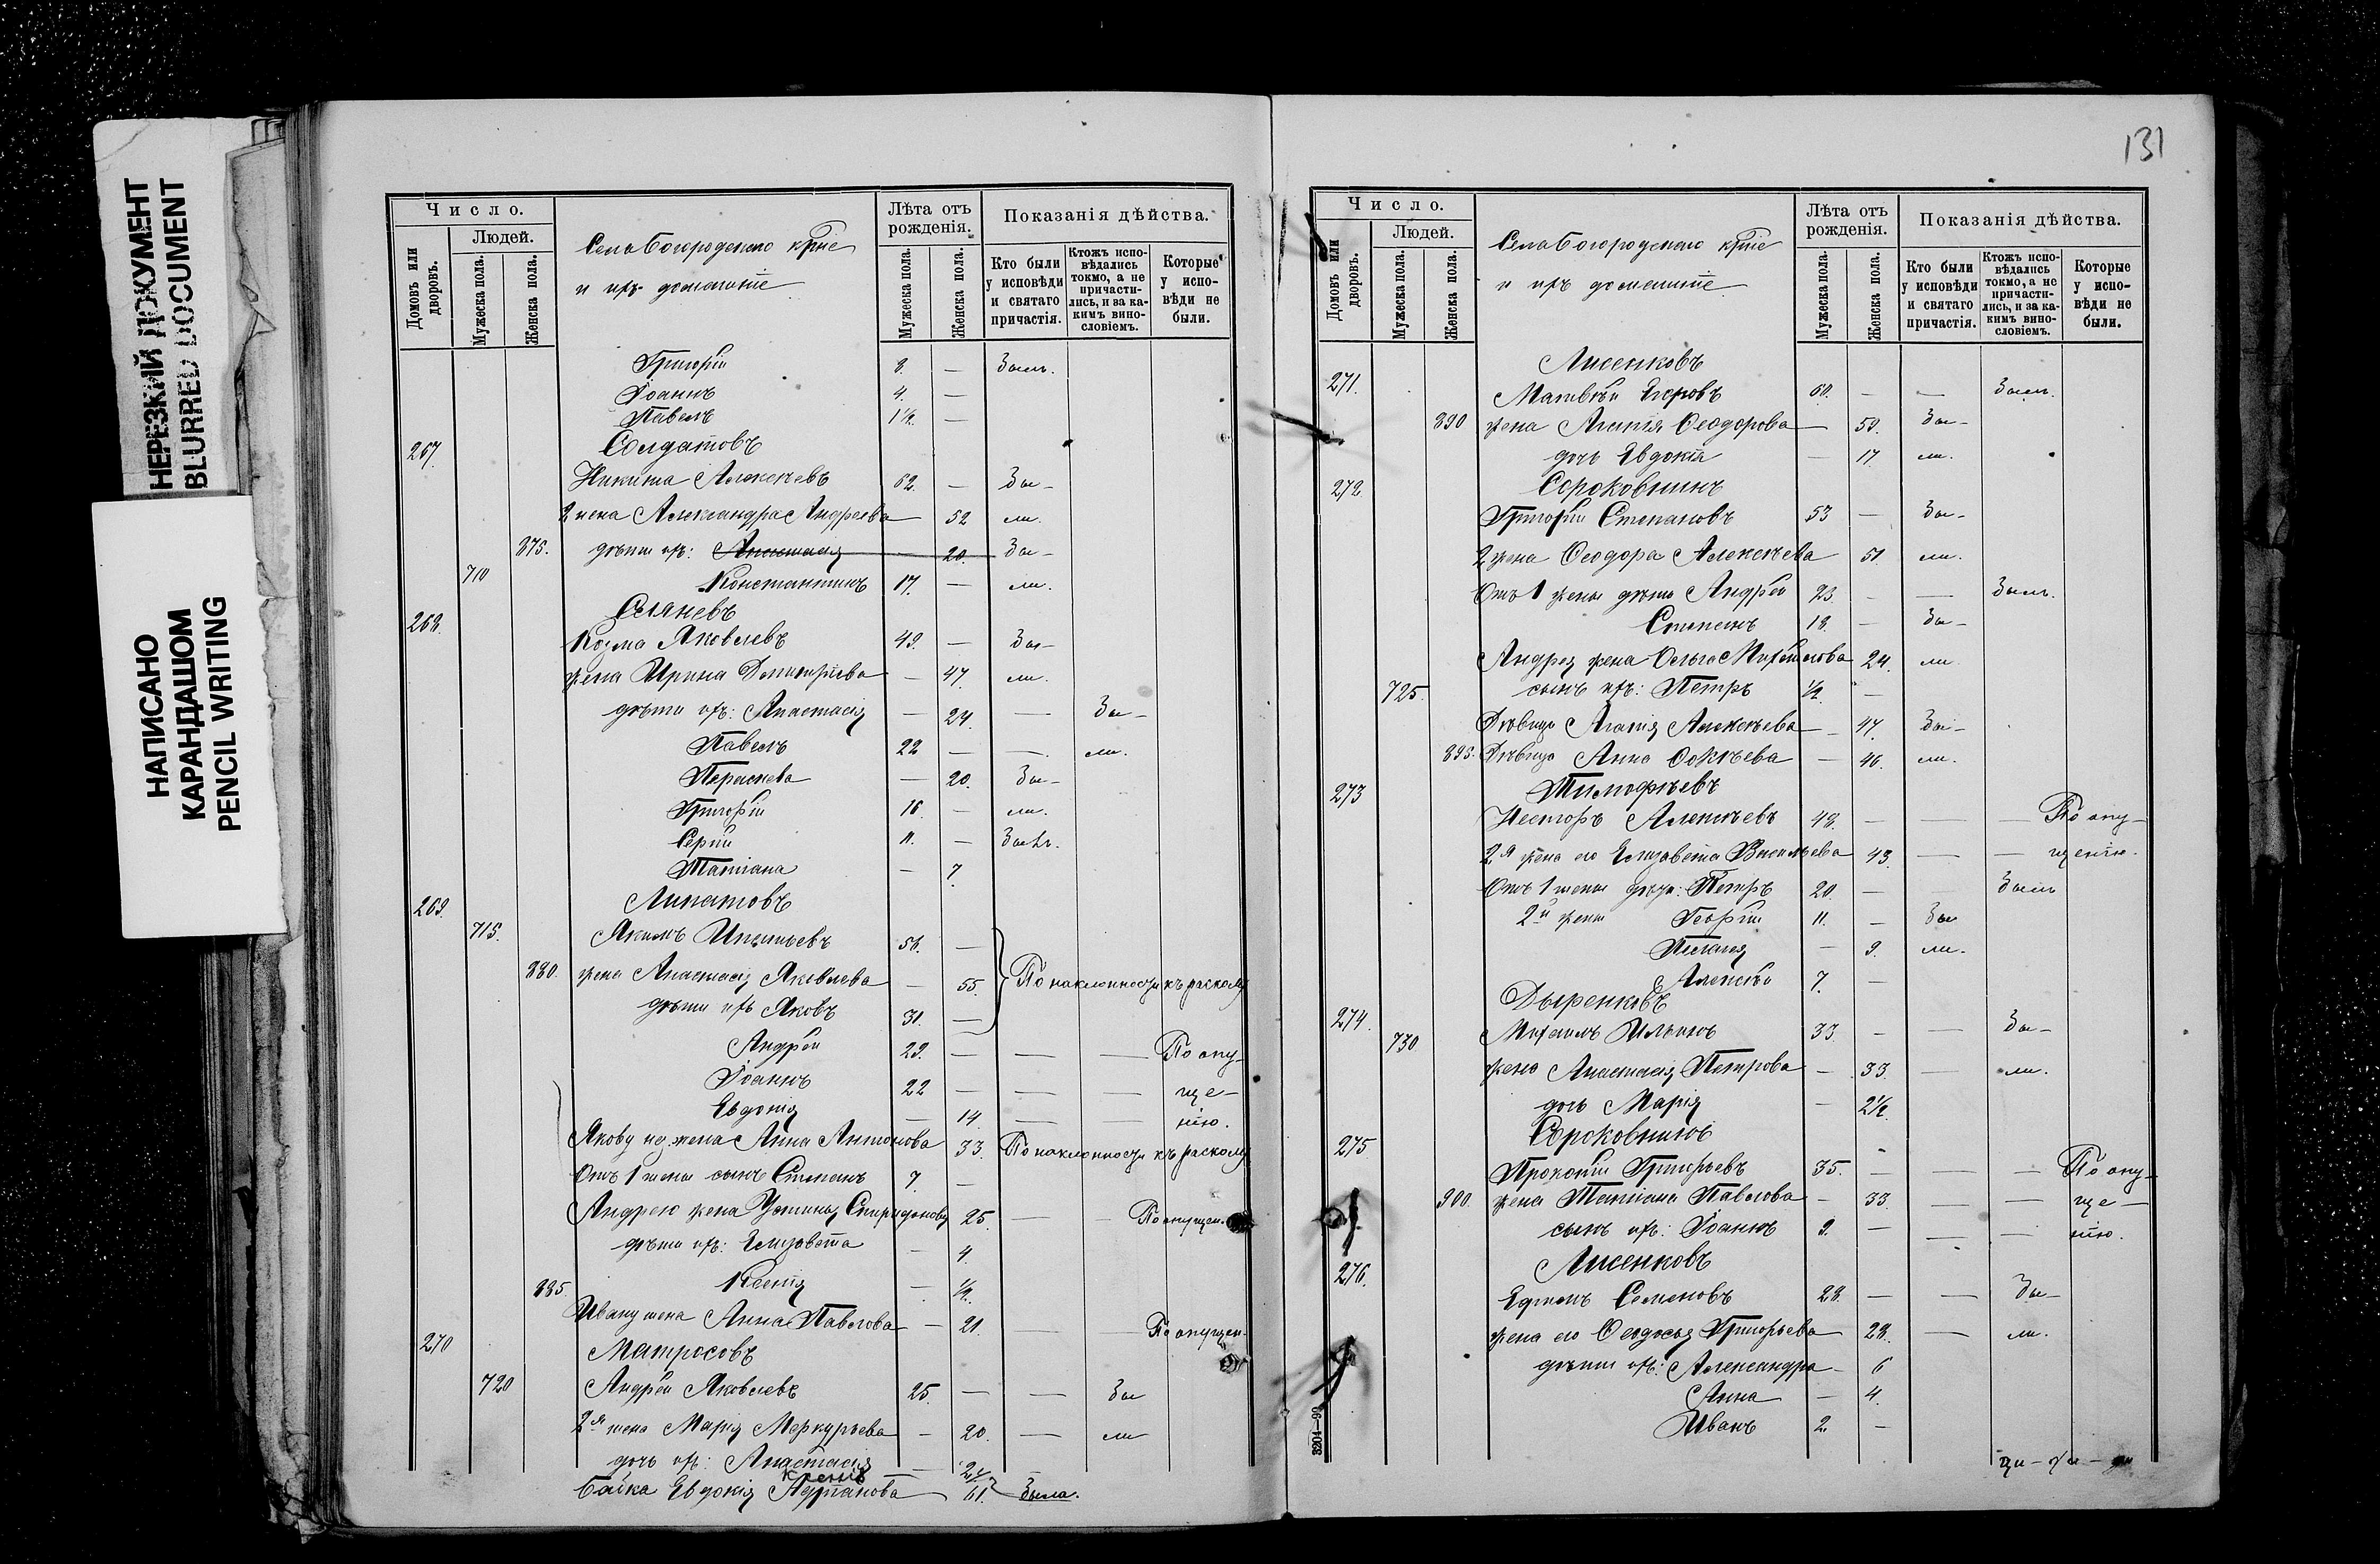 НЕРЕЗКИЙ ДОКУМЕНТ
BLURRED DOCUMENT
НАПИСАНО
КАРАНДАШОМ
PENCIL WRITING
Число.
Людей.
Домовъ или дворовъ.
Мужеска пола.
Женска пола.
Села Богородскаго
и ихъ домашніе
Лѣта отъ рожденія.
Мужеска пола.
Женска пола.
Показанія дѣйства.
Кто были у исповѣди и святаго причастія.
Ктожъ исповѣдались токмо, а не причастились, и за какимъ винословіемъ.
Которые у исповѣди не были.
Григорій 8. — Былъ.
Іоаннъ 4. —
Павелъ 1½. —
267. Солдатовъ
Никита Алексѣевъ 62. — Бы-
2 жена Александра Андреева 52 ли.
875. дѣти ихъ: Анастасія 20. Бы-
710 Константинъ 17. — ли.
268. Селяневъ
Козма Яковлевъ 49. — Бы-
жена Ирина Димитріева — 47. ли.
дѣти ихъ: Анастасія — 24. — Бы-
Павелъ 22 — — ли.
Параскева — 20. Бы-
Григорій 16. — ли.
Сергій 11. — Былъ.
Татіана — 7.
269. Липатовъ
715. Якимъ Ипатьевъ 56. —
880. жена Анастасія Яковлева — 55. По наклонности къ расколу
дѣти ихъ Яковъ 31. —
Андрей 29. — — — По опу-
Іоаннъ 22 — — — ще-
Евдокія — 14 — — нію.
Якову жена Анна Антонова 33. По наклонности къ расколу
Отъ 1 жены сынъ Степанъ 7. —
Андрею жена Устинья Спиридонова 25. — — По опущен.
дѣти ихъ: Елизавета — 4.
885. Ксенія — ½.
Ивану жена Анна Павлова — 21. — — По опущен.
270 Матросовъ
720 Андрей Яковлевъ 25. — — Бы
2я жена Марія Меркурьева — 20. — ли
дочь ихъ: Анастасія —
Евдокія 61. Была.
131
Число.
Людей.
Домовъ или дворовъ.
Мужеска пола.
Женска пола.
Села Богородскаго
и ихъ домашніе
Лѣта отъ рожденія.
Мужеска пола.
Женска пола.
Показанія дѣйства.
Кто были у исповѣди и святаго причастія.
Ктожъ исповѣдались токмо, а не причастились, и за какимъ винословіемъ.
Которые у исповѣди не были.
271. Лисенковъ
Матвѣй Егоровъ 60. — — Былъ.
890 жена Агапія Ѳеодорова — 59. Бы-
дочь Евдокія — 17. ли.
272 Сороковнинъ
Григорій Степановъ 53 — Бы-
2 жена Ѳеодора Алексѣева 51. ли.
Отъ 1 жены дѣти Андрей 23. — — Былъ.
Степанъ 18. — Бы-
Андрея жена Ольга Михайлова 24. ли
725. сынъ ихъ: Петръ ½. —
Дѣвица Агапія Алексѣева — 47. Бы-
895. Дѣвица Анна — 46. ли.
273 Тимофѣевъ
Несторъ Алексѣевъ 48. — — — По опу-
2я жена его Елизавета Васильева 43. — — щенію.
Отъ 1 жены дѣти: Петръ 20. — Былъ
2й жены Георгій 11. — Бы
Пелагея — 9. ли.
Алексѣй 7. —
274. Дыренковъ
730. Михаилъ Ильинъ 33. — — Бы-
жена Анастасія Петрова — 33. — ли.
дочь Марія — 2½.
275 Сороковнинъ
Прокопій Григорьевъ 35. — — — По опу-
900. жена Татіана Павлова — 33. — — ще-
сынъ ихъ: Іоаннъ 9. — — — нію.
276. Лисенковъ
Ефимъ Семеновъ 28. — — Бы-
жена его Ѳеодосья Григорьева 28. — ли.
дѣти ихъ: Александра — 6
Анна — 4.
Иванъ 2. —
3204—99